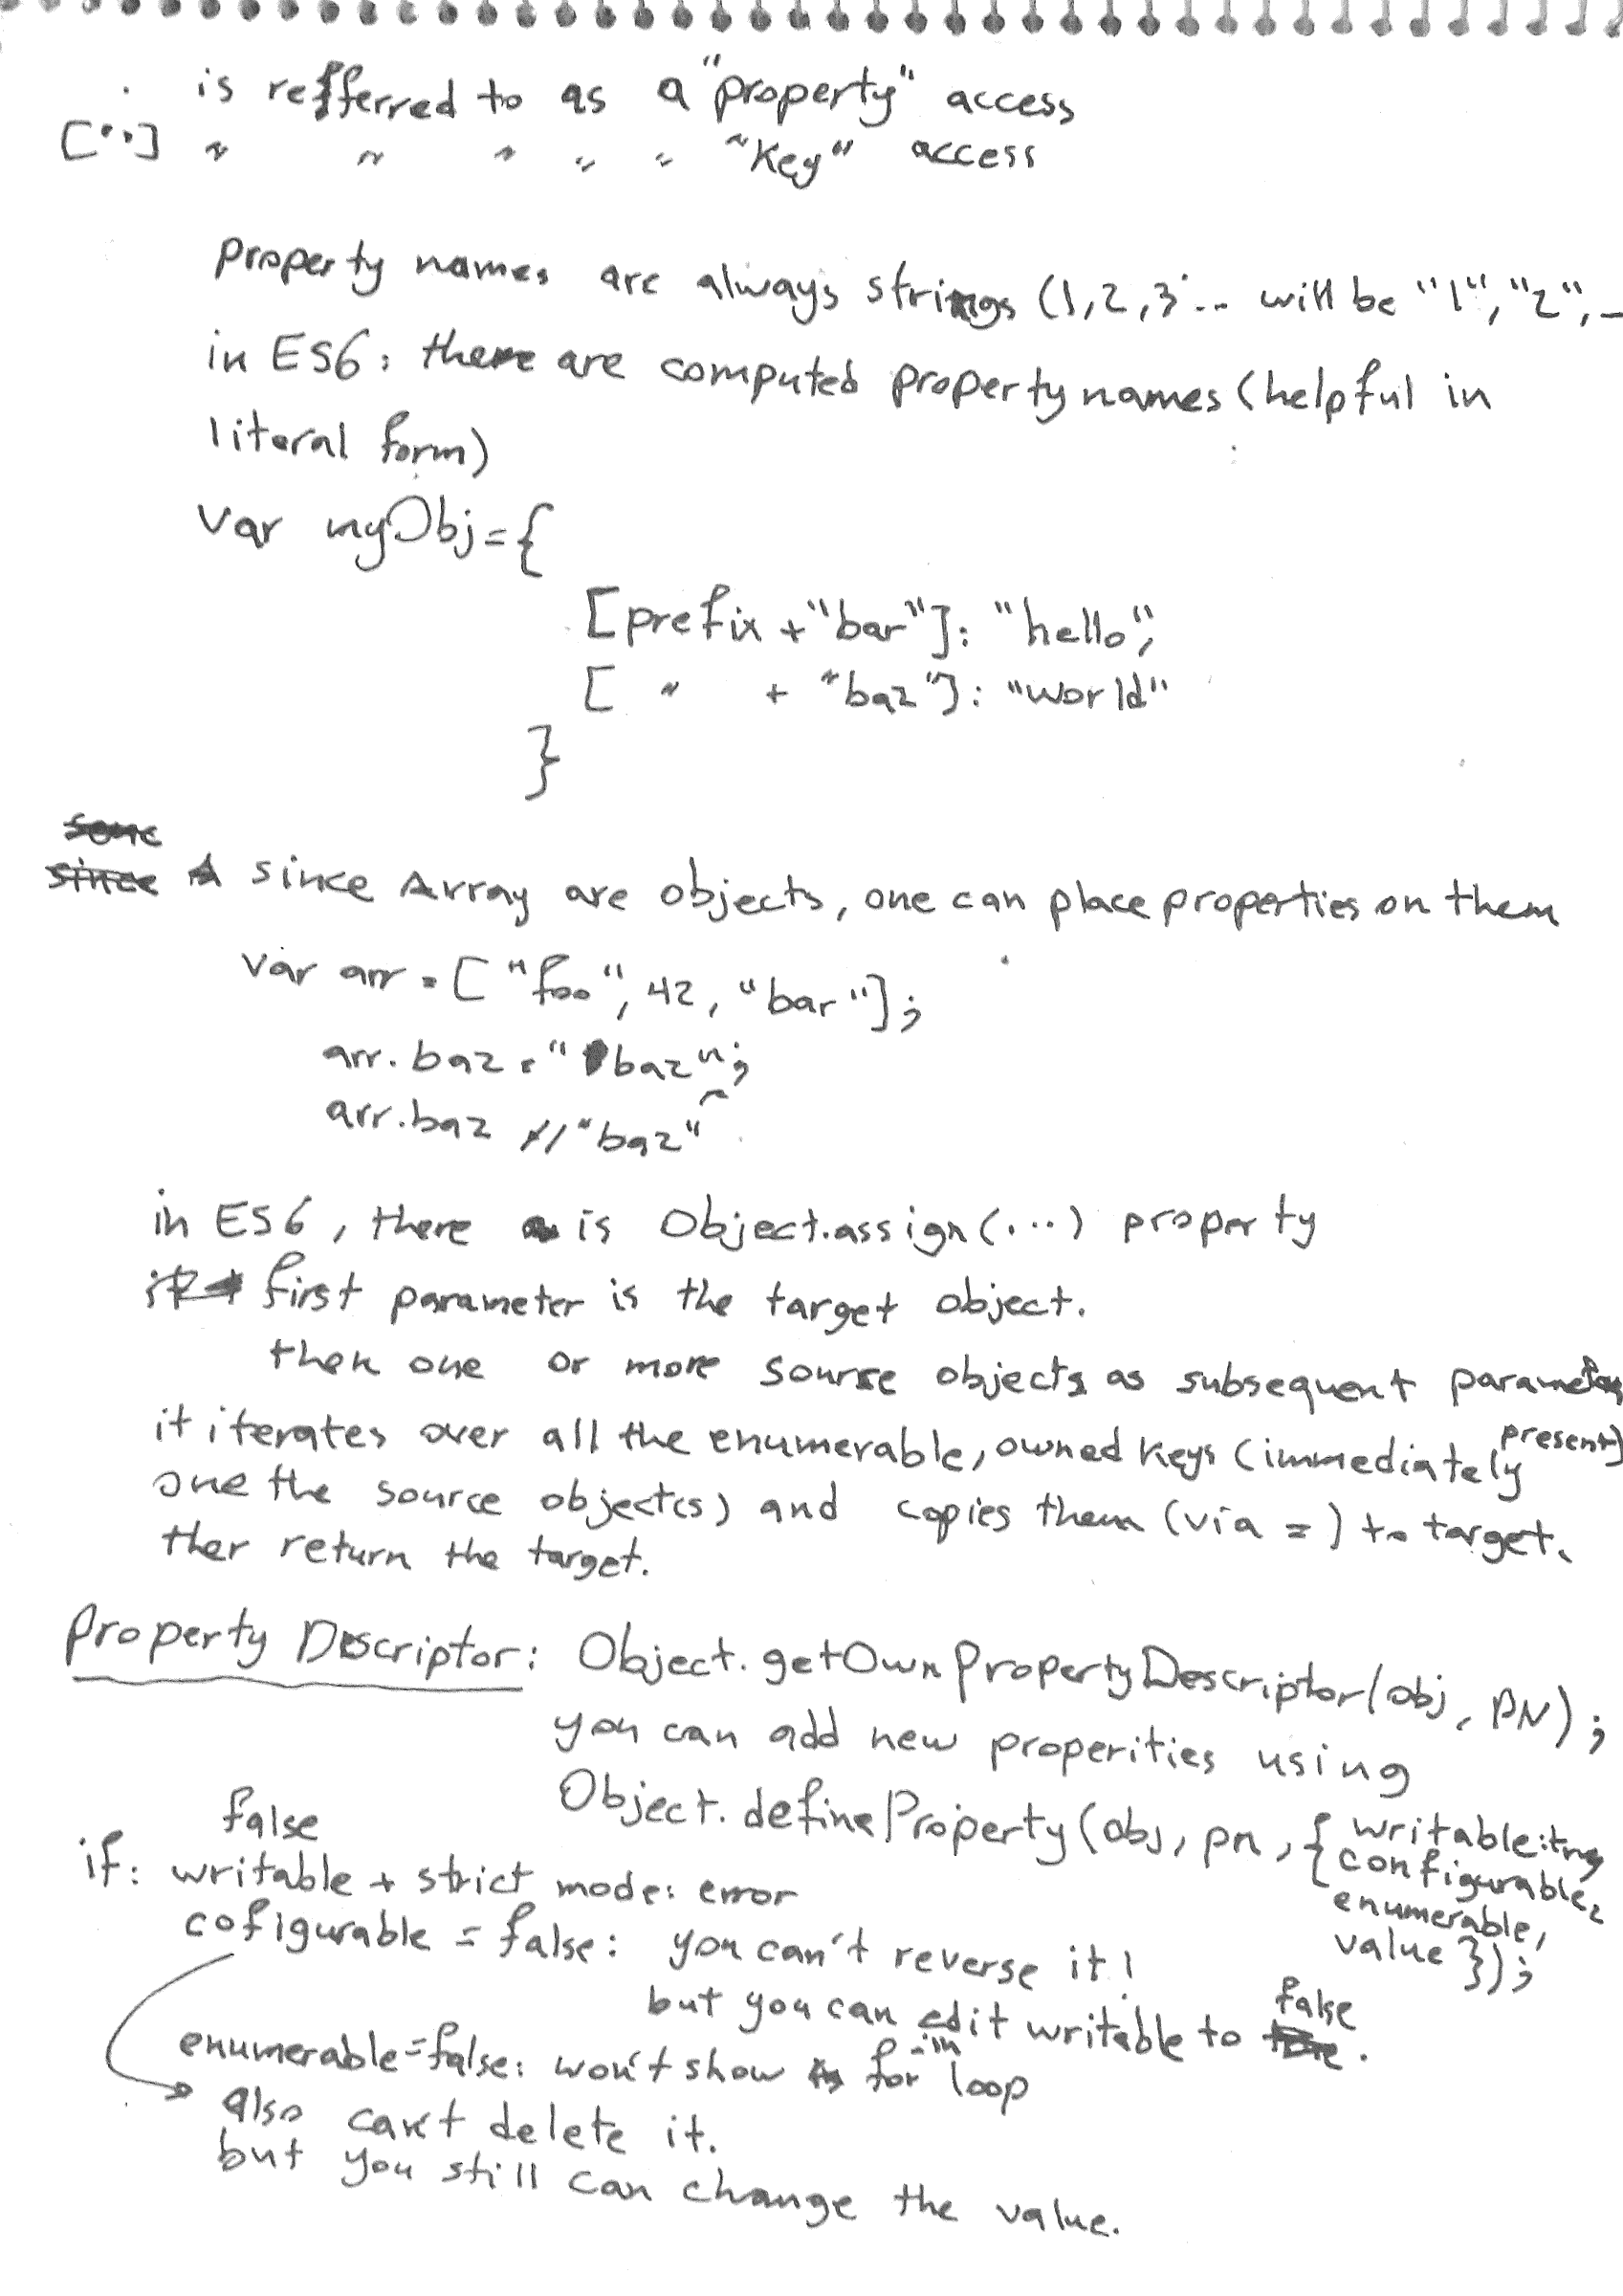 . is refferred to as a "property" access
[".."] " " " " " "Key" access
property names are always strings (1,2,3... will be "1","2",..
in ES6: there are computed property names (helpful in
literal form)
var myObj={
[prefix + "bar"]: "hello",
[ " + "baz"]: "world"
}
some
since A since Array are objects, one can place properties on them
var arr = ["foo", 42, "bar"];
arr.baz = "baz";
arr.baz // "baz"
in ES6, there is Object.assign(...) property
it first parameter is the target object.
then one or more source objects as subsequent parameters
it iterates over all the enumerable, owned keys (immediately present)
one the source object(s) and copies them (via =) to target.
ther return the target.
Property Descriptor: Object.getOwnPropertyDescriptor(obj, PN);
you can add new properities using
Object.defineProperty(obj, pn, { writable:true
configurable,
enumerable,
value });
false
if: writable + strict mode: error
cofigurable = false: you can't reverse it!
but you can edit writable to false.
enumerable=false: won't show for-in loop
also can't delete it.
but you still can change the value.